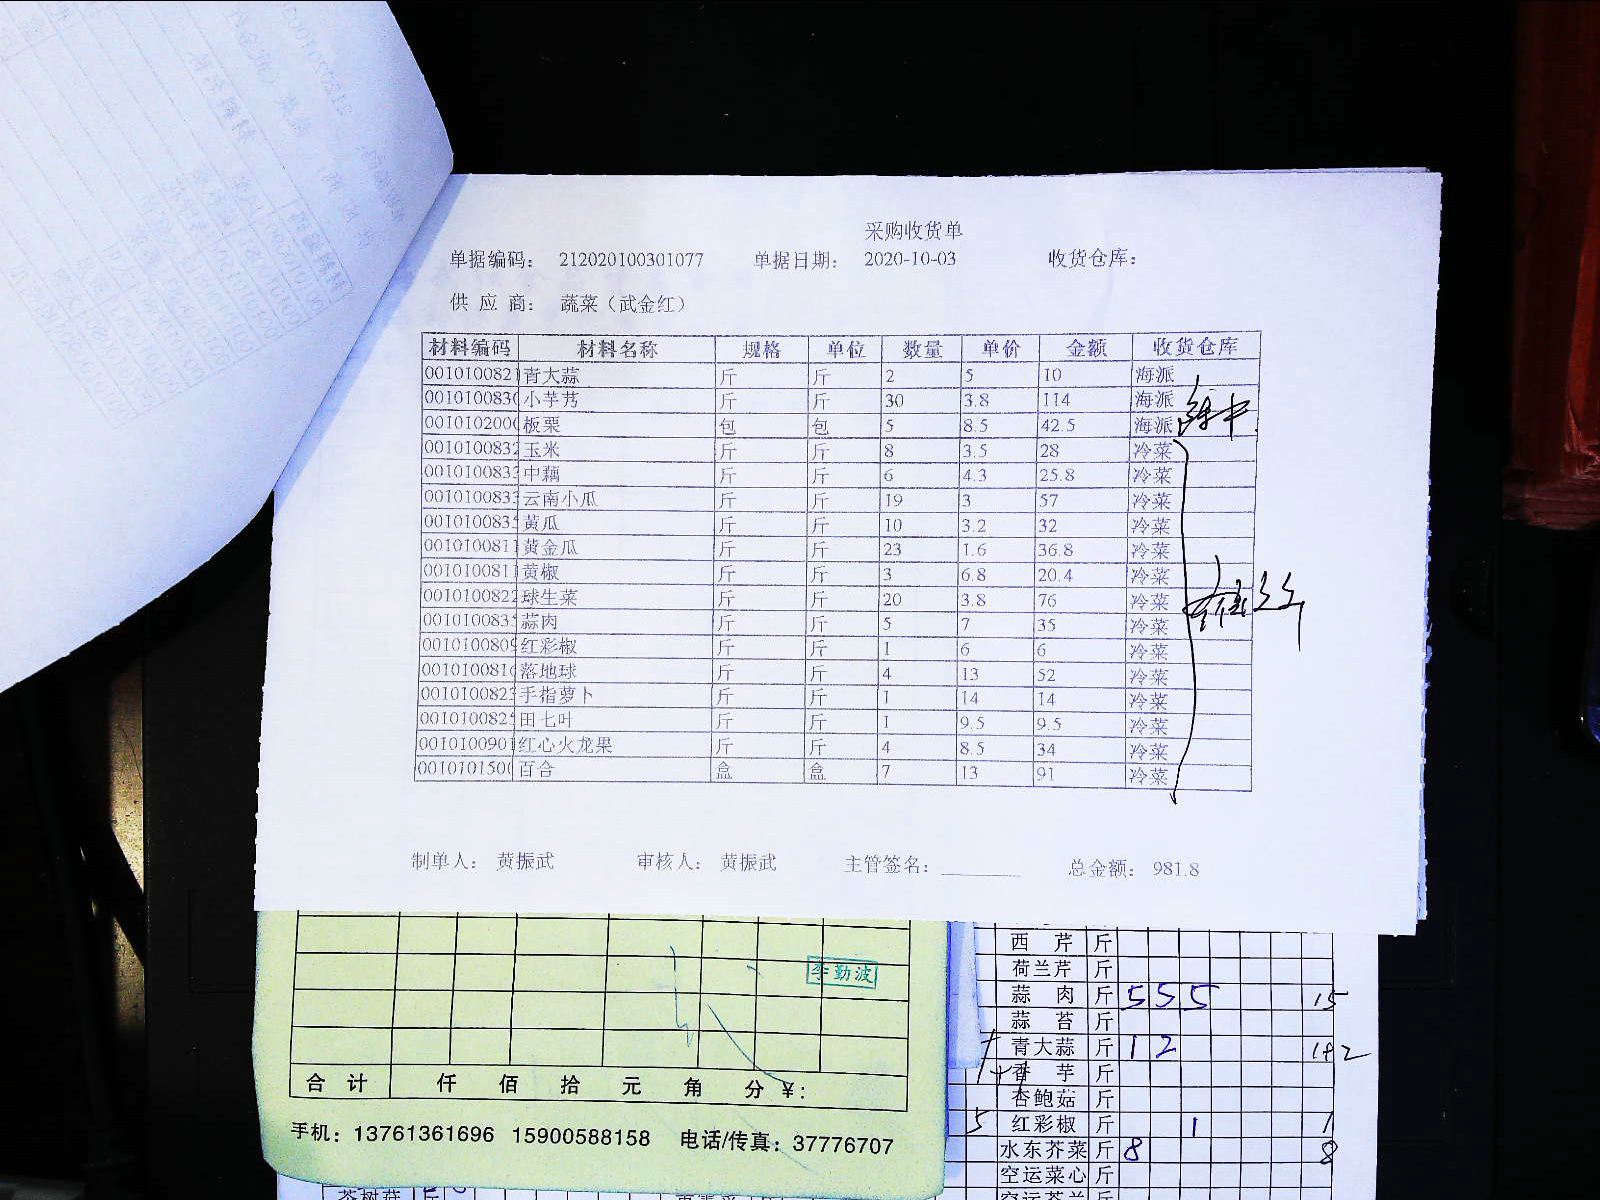 采购收货单
单据编码： 212020100301077 单据日期： 2020-10-03 收货仓库：
供 应 商： 蔬菜（武金红）
材料编码 材料名称 规格 单位 数量 单价 金额 收货仓库
0010100821 青大蒜 斤 斤 2 5 10 海派
001010083 小芋艿 斤 斤 30 3.8 114 海派
001010200 板栗 包 包 5 8.5 42.5 海派
0010100832 玉米 斤 斤 8 3.5 28 冷菜
001010083 中藕 斤 斤 6 4.3 25.8 冷菜
001010083 云南小瓜 斤 斤 19 3 57 冷菜
001010083 黄瓜 斤 斤 10 3.2 32 冷菜
001010081 黄金瓜 斤 斤 23 1.6 36.8 冷菜
001010081 黄椒 斤 斤 3 6.8 20.4 冷菜
0010100822 球生菜 斤 斤 20 3.8 76 冷菜
001010083 蒜肉 斤 斤 5 7 35 冷菜
001010080 红彩椒 斤 斤 1 6 6 冷菜
001010081 落地球 斤 斤 4 13 52 冷菜
001010082 手指萝卜 斤 斤 1 14 14 冷菜
001010082 田七叶 斤 斤 1 9.5 9.5 冷菜
001010090 红心火龙果 斤 斤 4 8.5 34 冷菜
001010150 百合 盒 盒 7 13 91 冷菜
制单人： 黄振武 审核人： 黄振武 主管签名： 总金额： 981.8
李勤波
合 计 仟 佰 拾 元 角 分 ¥：
手机：13761361696 15900588158 电话/传真：37776707
西 芹 斤
荷兰芹 斤
蒜 肉 斤 5 5 5 15
蒜 苔 斤
青大蒜 斤 1 2 1+2
香 芋 斤
杏鲍菇 斤
5 红彩椒 斤 1 1
水东芥菜 斤 8 8
空运菜心 斤
空运芥兰 斤
茶树菇